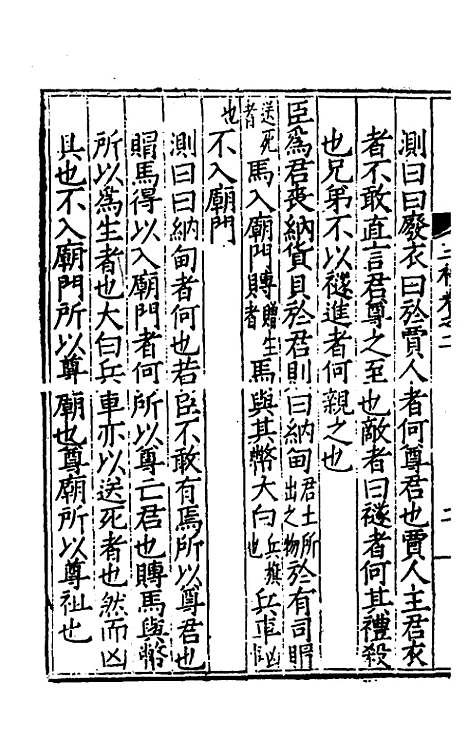 測曰曰廢衣曰於賈人者何尊君也賈人主君衣
者不敢直言君尊之至也敵者曰襚者何其禮殺
也兄弟不以襚進者何親之也
臣為君喪納貨貝於君則曰納甸君土所出之物於有司賵
送死者馬入廟門賻贈生者馬與其幣大白兵旗也兵車
也不入廟門
測曰曰納甸者何也若臣不敢有焉所以尊君也
賵馬得以入廟門者何所以尊亡君也賻馬與幣
所以為生者也大白兵車亦以送死者也然而凶
具也不入廟門所以尊廟也尊廟所以尊祉也
二禮
二